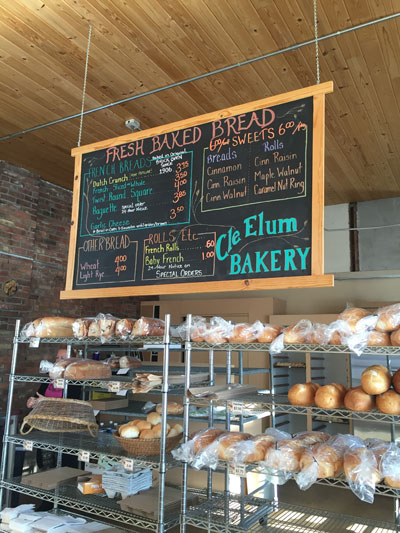 FRESH BAKED BREAD
FRENCH BREADS
Baked in Original
BRICK OVEN
SINCE
1906
Dutch Crunch 3.75
French Sliced or Whole 3.75
French Round Square 4.00
Baguette 3.50
special order
24 hour Notice
Garlic Cheese 3.50
OTHER BREAD
Wheat 4.00
Light Rye 4.00
ROLLS Etc
French Rolls .60
Baby French 1.00
24-Hour Notice on
SPECIAL ORDERS
SWEETS 6.00
Breads
Cinnamon
Cinn Raisin
Cinn Walnut
Rolls
Cinn Raisin
Maple Walnut
Caramel Nut Ring
Cle Elum
BAKERY